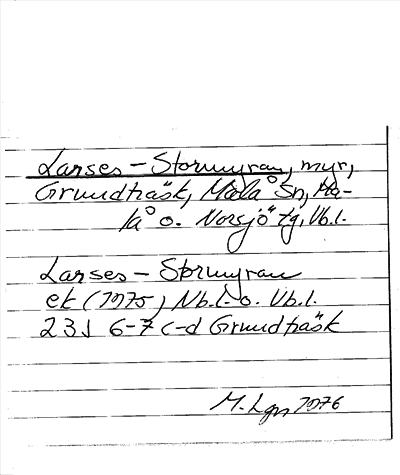 Larses-Stormyran, myr,
Grundträsk, Malå Sn, Ma-
lå o. Norsjö tg, Vb.l.
Larses-Stormyran
ek (1975) Nb.l. o. Vb.l.
23J 6-7 c-d Grundträsk
M. Lgn 1976